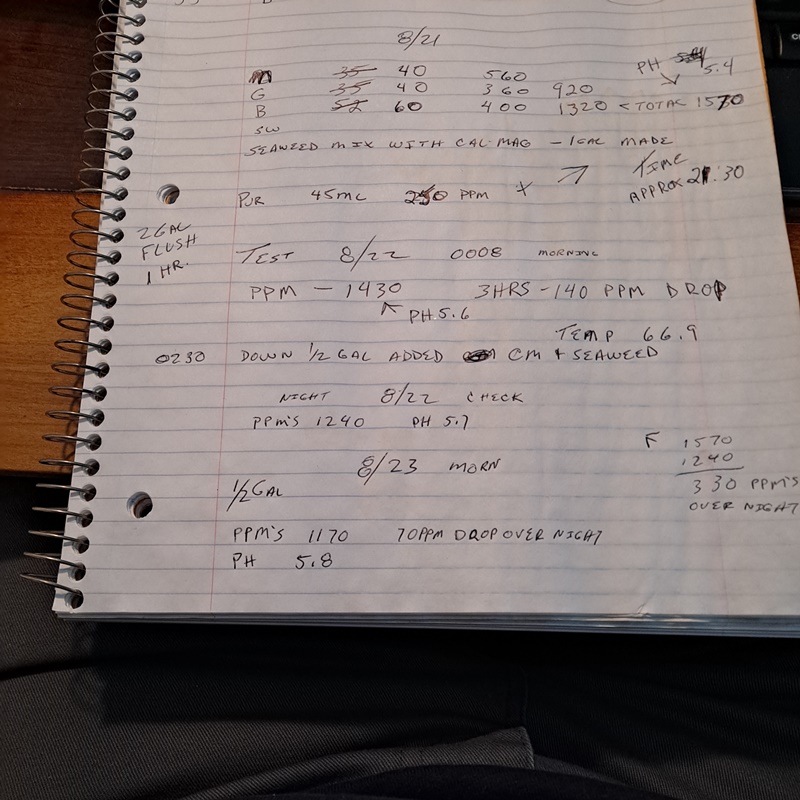 8/21
M 35 40 560 PH 5.4
G 35 40 360 920
B 52 60 400 1320 < TOTAL 1570
SW
SEAWEED MIX WITH CAL-MAG - 1GAL MADE
TIME
APPROX 21:30
PUR 45ML 250 PPM
2GAL
FLUSH
1 HR.
TEST 8/22 0008 MORNING
PPM - 1430 3HRS - 140 PPM DROP
PH 5.6
TEMP 66.9
0230 DOWN 1/2 GAL ADDED CM + SEAWEED
NIGHT 8/22 CHECK
PPM'S 1240 PH 5.7
1570
1240
330 PPM'S
OVER NIGHT
8/23 MORN
1/2 GAL
PPM'S 1170 70PPM DROP OVER NIGHT
PH 5.8